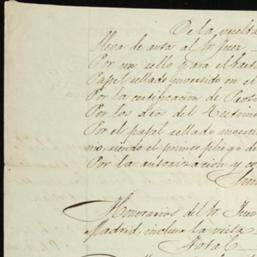 De la vuelta
lleva de autos al Sr Juez
Por un sello para el
Papel sellado invertido en el
Por la certificacion de
Por los dos del Testim
Por el papel sellado
mo, siendo el primer pliego de
Por la autorizacion y
Honorarios del Sr Juez
Madrid, inclusa la vista
Nota